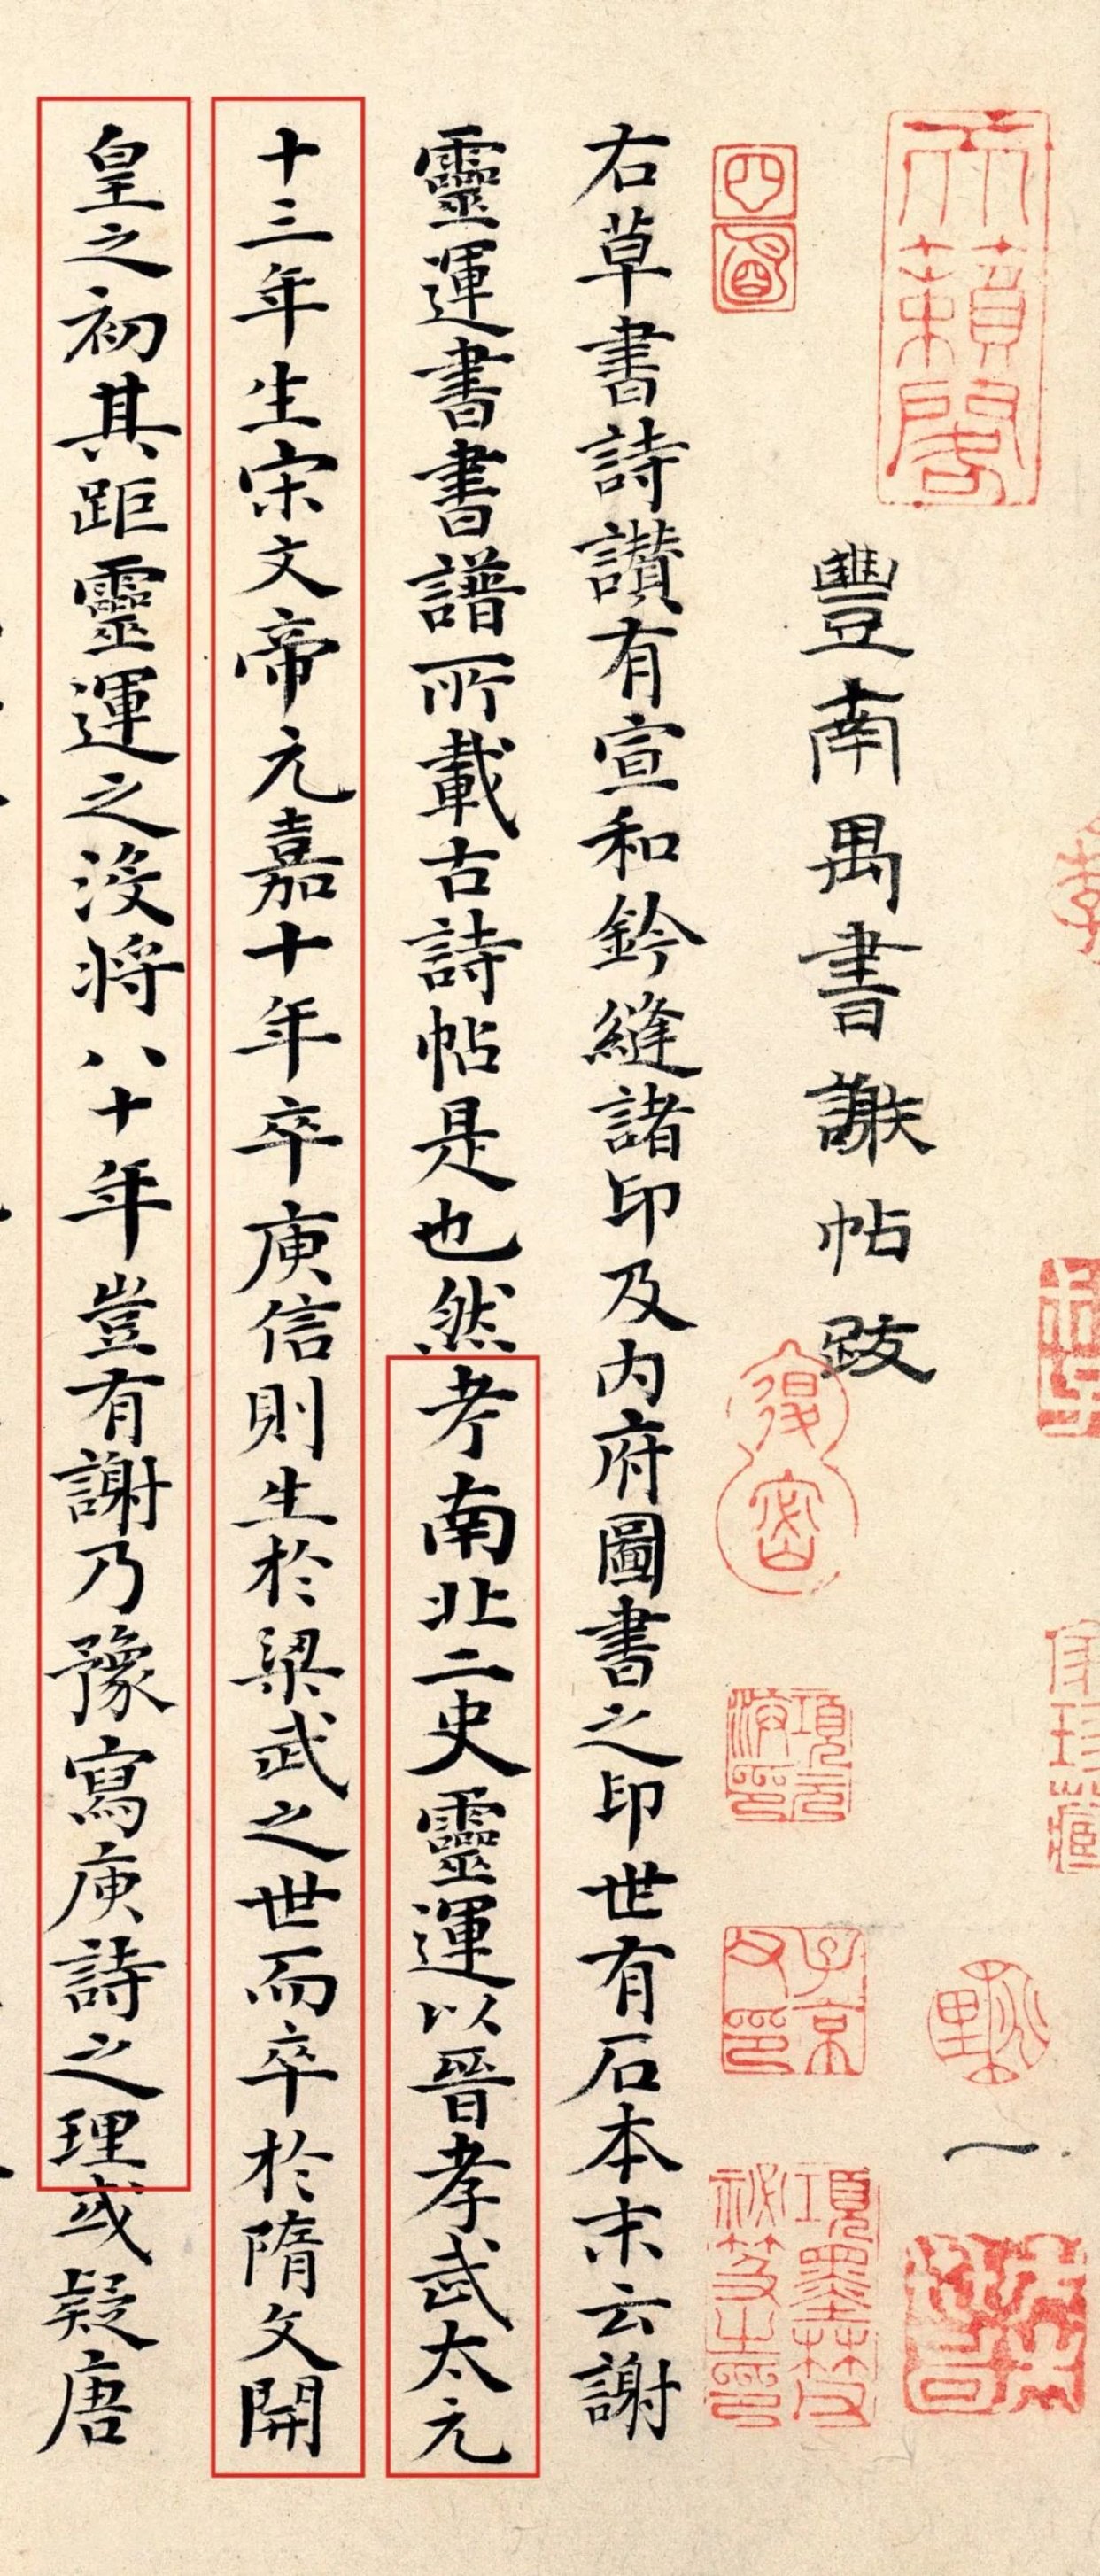 天籟閣
一
豐南禺書謝帖跋
項元汴印
子京父印
項墨林父秘笈之印
右草書詩讃有宣和鈐縫諸印及内府圖書之印世有石本末云謝
靈運書書譜所載古詩帖是也然考南北二史靈運以晉孝武太元
十三年生宋文帝元嘉十年卒庾信則生於梁武之世而卒於隋文開
皇之初其距靈運之没将八十年豈有謝乃豫寫庾詩之理或疑唐